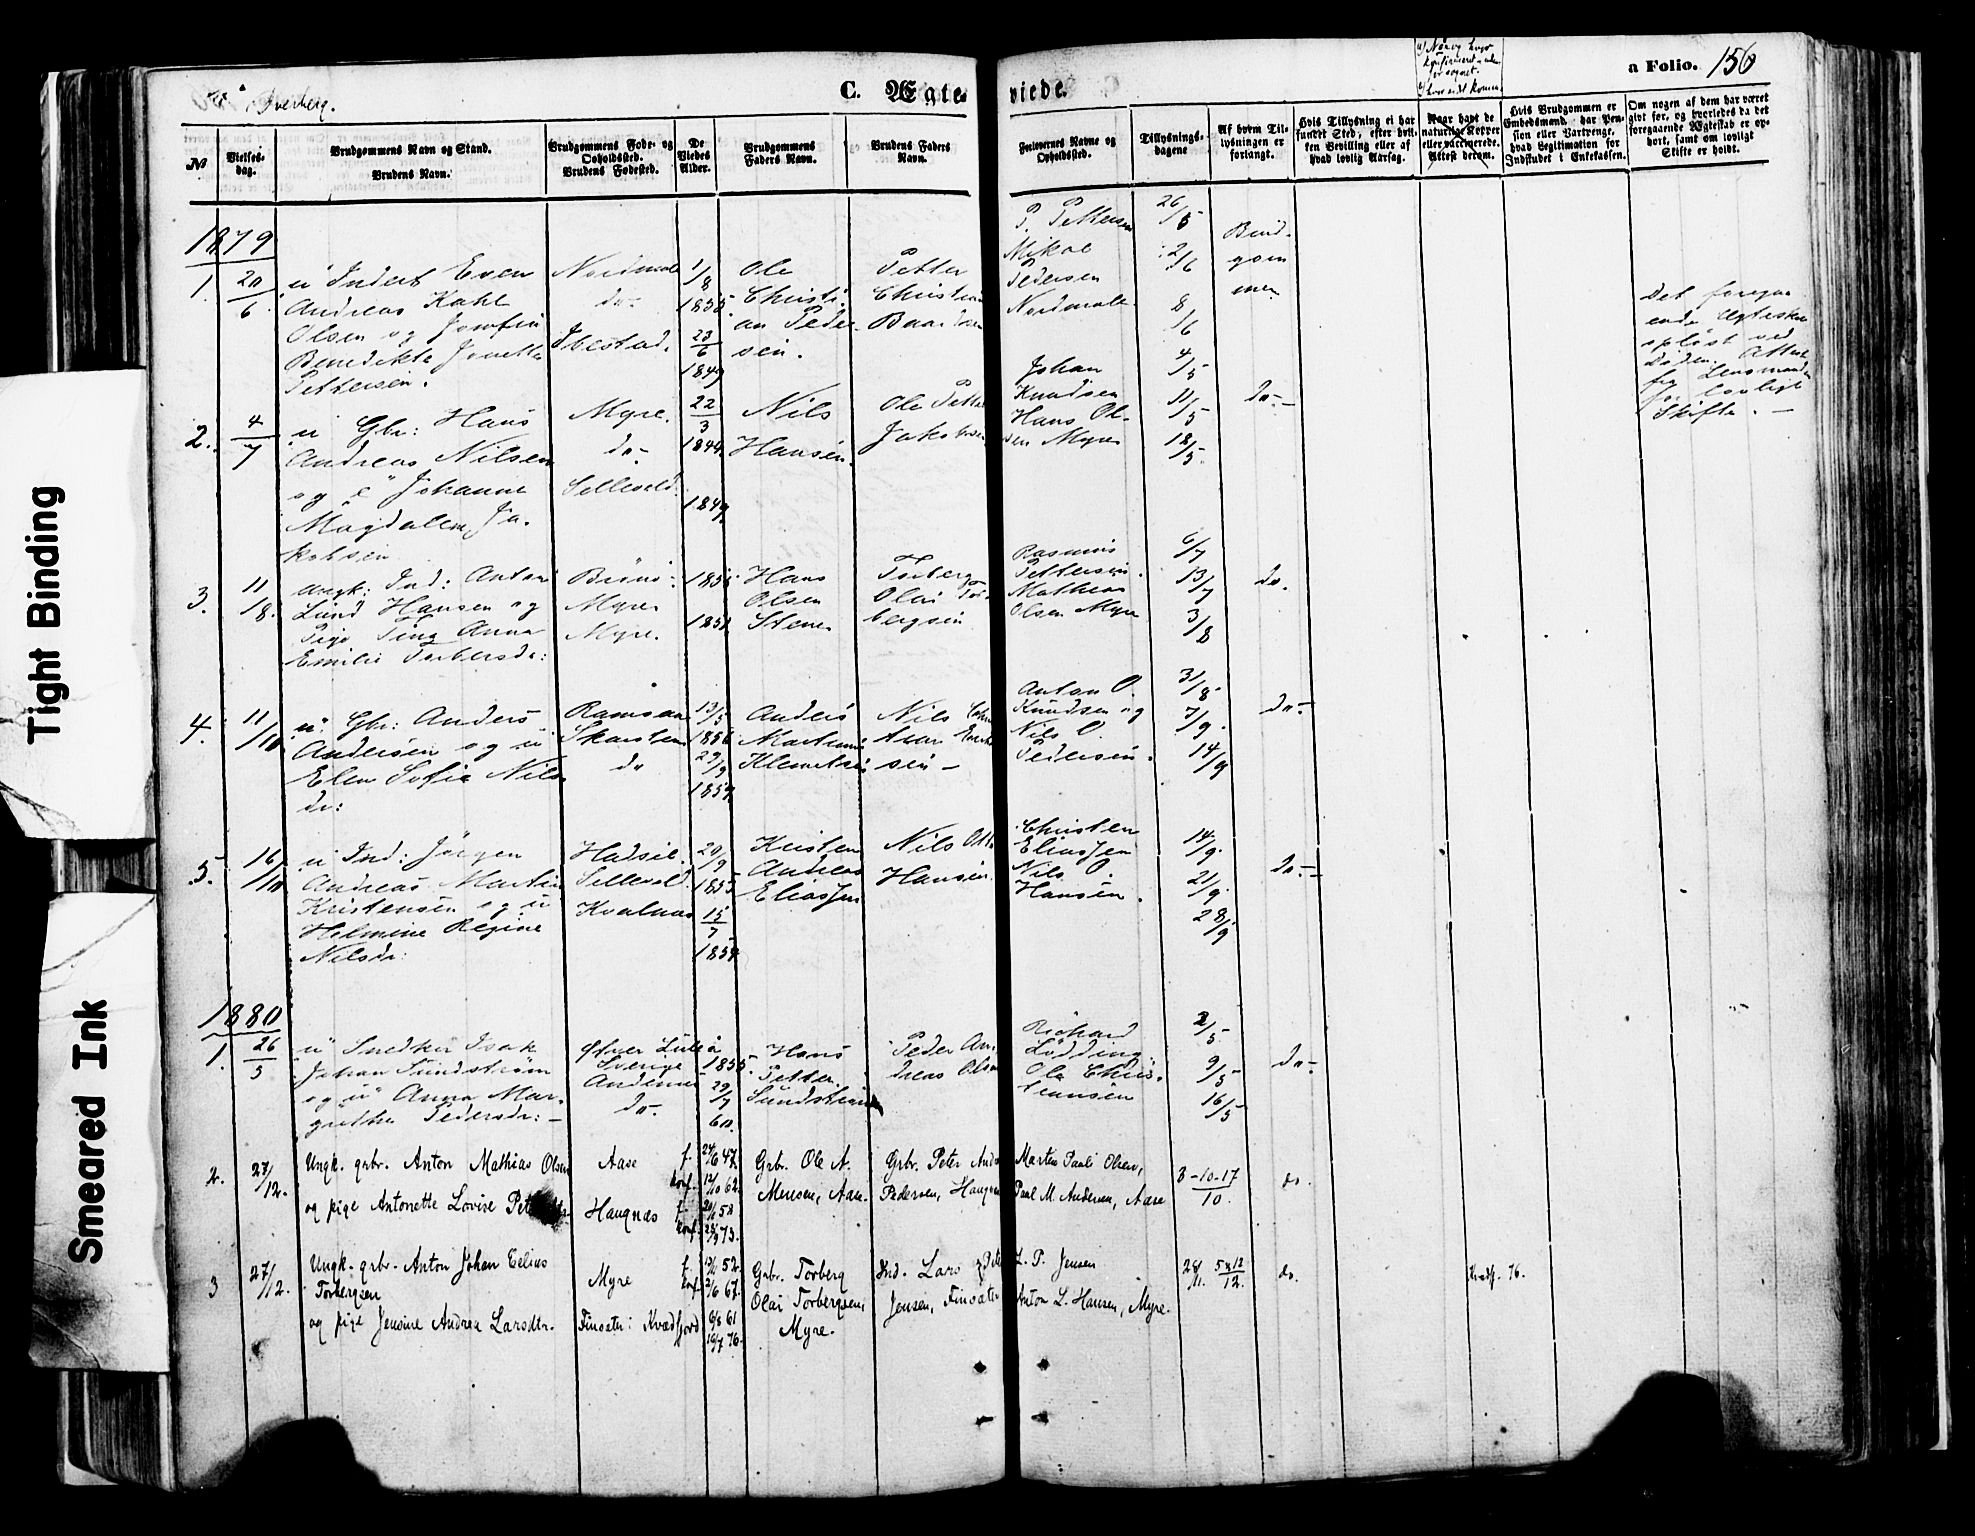 Tight Binding
Smeared Ink
Dverberg.
C. Ægte
viede.
a Folio. 156
No
Vielses-
dag.
Brudgommens Navn og Stand.
Brudens Navn.
Brudgommens Føde- og
Opholdssted.
Brudens Fødested.
De
Viedes
Alder.
Brudgommens
Faders Navn.
Brudens Faders
Navn.
Forlovernes Navne og
Opholdssted.
Tillysnings-
dagene
Af hvem Til-
lysningen er
forlangt.
Hvis Tillysning ei har
fundet Sted, efter hvil-
ken Bevilling eller af
hvad lovlig Aarsag.
Naar havt de
naturlige Kopper
eller vaccinerede.
Attest derom.
Hvis Brudgommen er
Embedsmand: har Pen-
sion eller Vartpenge,
hvad Legitimation for
Indskudet i Enkekassen.
Om nogen af dem har været
givt før, og hvorledes da det
foregaaende Ægteskab er op-
hørt, samt om lovligt
Skifte er holdt.
1879
1. 20/6 Inderst Even
Andreas Kahl
Olsen og Josefin
Benedikte Jonetta
Pettersen.
do
Ibestad.
1/8
1855.
23/6
1849
Ole
Christi-
an Peder-
sen.
Petter
Christian
P. Pettersen
Mikal
Pedersen
26/5
2/6
8/6
Brud-
gom
men
Det forega
ende Ægteska
opløst ved
Døden. Attest
fra Lensmanden
for lovligt
Skifte. —
2. 4/7 Gbr: Hans
Andreas Nilsen
og Johanne
Magdalene Ja-
kobsen
Myre.
do-
22/3
1844
1849.
Nils
Hansen.
Ole Petter
Johan
Knudsen
Hans Ol-
sen Myre
4/5
11/5
18/5.
do.-
3. 11/8. Ungk: Ind: Anton
Lund Hansen og
Pige Anna
Emilie Torbersdr:
Myre
Myre.
1855
Hans
Olsen
Torberg
Olai Tor-
bergsen
Rasmus
Pettersen.
Mathias
Olsen Myre
6/7
13/7
3/8
do.
4. 11/10 Gbr: Anders
Andersen og
Elen Sofie Nils
dr:
do
13/5
1856
29/9
1857
Anders
Martinus
Klemetsen
Nils
sen —
Anton O.
Knudsen og
Nils O.
Pedersen.
31/8
7/9.
14/9
do.-
5. 16/10 Ind: Jørgen
Andreas Martin
Kristensen og
Helmine Regine
Nilsdr:
Hadsel.
Kvalnæs
20/9
1855
15/7
Kristen
Andreas
Eliassen
Nils Otto
Hansen.
Christen
Eliassen
Nils O.
Hansen.
14/9.
21/9.
28/9
do.-
1880
1. 26/5 Snedker Isak
Johan Sundstrøm
og Anna Mar-
grethe Pedersdr: —
Øfver Luleå
Sverige
Andenæs
do.
1855.
29/7
60.
Hans
Petter
Sundstrøm
Peder An-
dreas Olsen
Richard
Lødding.
Ole Chris-
tiansen
2/5.
9/5
16/5
do.-
2. 27/12. Ungk. grbr. Anton Mathias Olsen
og pige Antonette Lovise
Aase
Haugnæs
f. 24/6 47.
konf. 12/10 62.
f. 58
konf. 73.
Grbr. Ole A.
Mensen, Aase.
Grbr. Peter Andr
Pedersen, Haugnæs
Martin Pauli Olsen,
Paul M. Andersen, Aase
3-10-17
10.
do.
3 27/12. Ungk. grbr. Anton Johan Celius
Torbergsen
og pige Jensine Andrea Larsdtr.
Myre
Finsæter: Kvædfjord
f. 52.
konf. 67.
6/8 61
16/7 76.
Grbr. Torberg
Olai Torbergsen,
Myre.
Ind. Lars Peter
Jensen, Finsæter
L. P. Jensen
Anton L. Hansen, Myre.
28/11. 5 & 12
12.
do.
Kvædfj. 76.